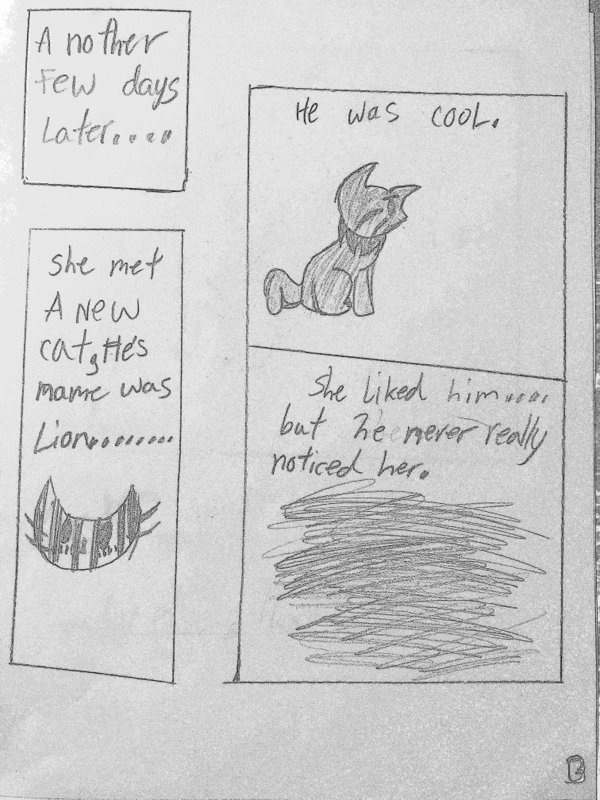 A nother
Few days
Later....
she met
A New
cat,He's
name was
Lion........
He was cool.
She Liked him....
but he never really
noticed her.